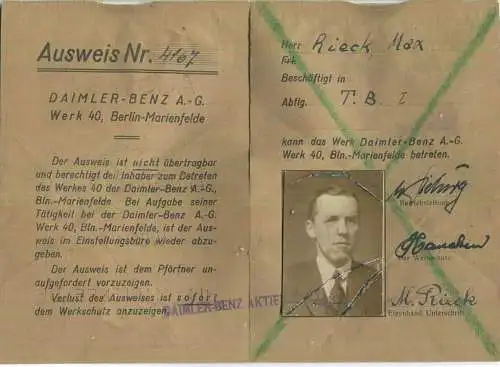 Ausweis Nr. 4107
DAIMLER-BENZ A.-G.
Werk 40, Berlin-Marienfelde
Der Ausweis ist nicht übertragbar
und berechtigt den Inhaber zum Betreten
des Werkes 40 der Daimler-Benz A.-G.,
Bln.-Marienfelde. Bei Aufgabe seiner
Tätigkeit bei der Daimler-Benz A.-G.
Werk 40, Bln.-Marienfelde, ist der Aus-
weis im Einstellungsbüro wieder abzu-
geben.
Der Ausweis ist dem Pförtner un-
aufgefordert vorzuzeigen.
Verlust des Ausweises ist sofort
dem Werkschutz anzuzeigen.
DAIMLER-BENZ AKTIE
Herr Rieck, Max
Frl.
Beschäftigt in
Abtlg. T. B. I
kann das Werk Daimler-Benz A.-G.
Werk 40, Bln.-Marienfelde betreten.
Betriebsleitung
Der Werkschutz
M. Rieck
Eigenhänd. Unterschrift